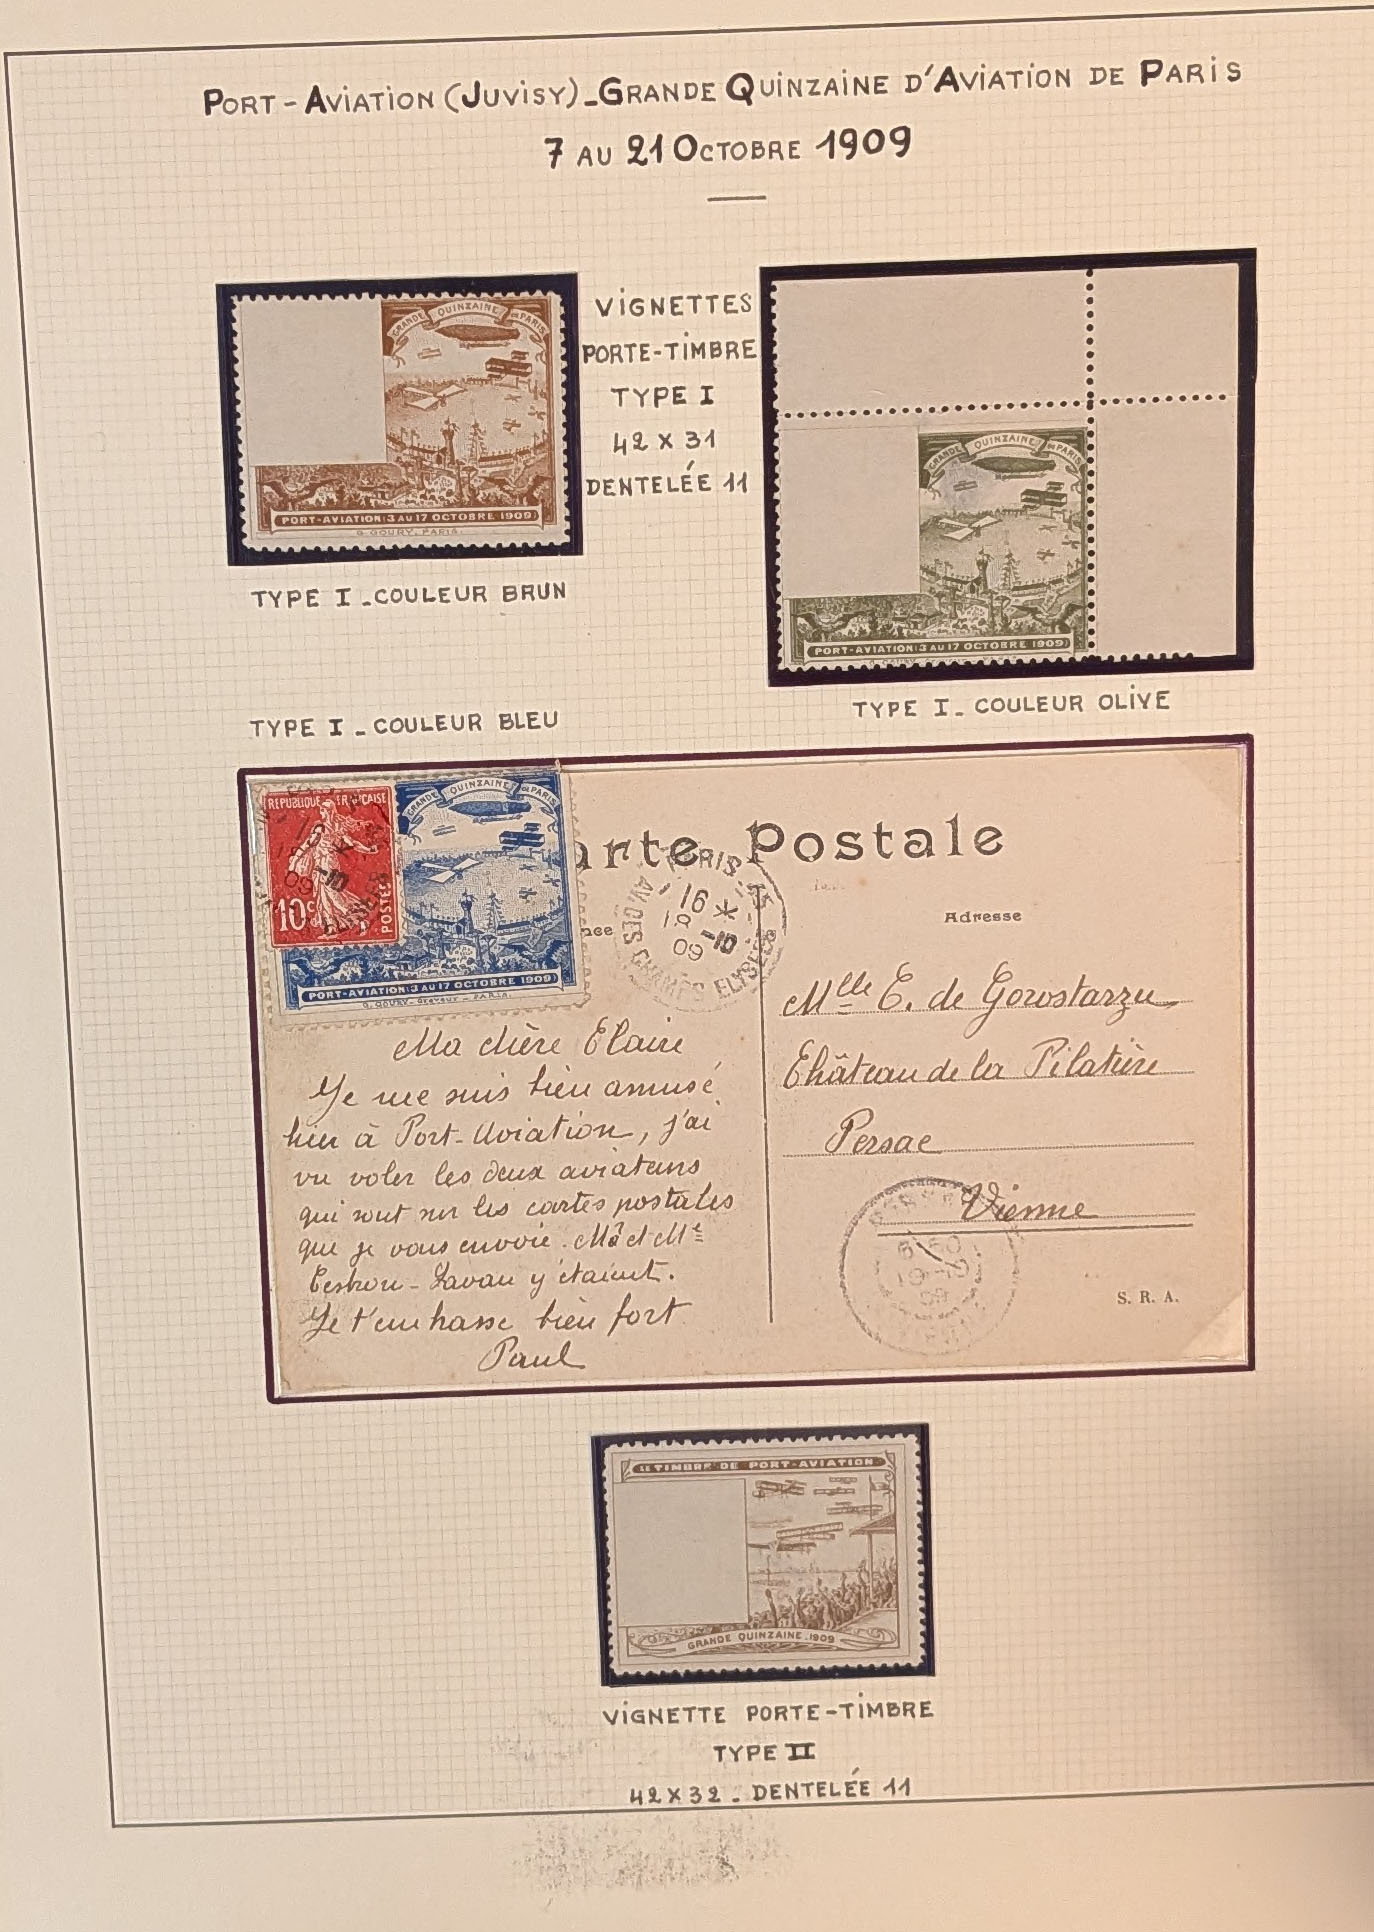 PORT-AVIATION (JUVISY)-GRANDE QUINZAINE D'AVIATION DE PARIS
7 AU 21 OCTOBRE 1909
GRANDE QUINZAINE de PARIS
PORT-AVIATION (3 AU 17 OCTOBRE 1909)
G. GOURY, PARIS.
VIGNETTES
PORTE-TIMBRE
TYPE I
42 X 31
DENTELÉE 11
GRANDE QUINZAINE de PARIS
PORT-AVIATION (3 AU 17 OCTOBRE 1909)
TYPE I - COULEUR BRUN
TYPE I - COULEUR OLIVE
TYPE I - COULEUR BLEU
REPUBLIQUE FRANÇAISE
10c
POSTES
GRANDE QUINZAINE de PARIS
PORT-AVIATION (3 AU 17 OCTOBRE 1909)
G. GOURY - Graveur - PARIS.
arte Postale
nce
PARIS
16 *
18 -10
09
AV. DES CHAMPS ELYSEES
Adresse
Mlle E. de Gorostarzu
Château de la Pilatière
Persac
Vienne
Ma chère Claire
Je me suis bien amusé
hier à Port-Aviation, j'ai
vu voler les deux aviateurs
qui sont sur les cartes postales
que je vous envoie. Mr et Me
y étaient.
Je t'embrasse bien fort
Paul
S. R. A.
LE TIMBRE DE PORT-AVIATION
GRANDE QUINZAINE.1909
VIGNETTE PORTE-TIMBRE
TYPE II
42 X 32 - DENTELÉE 11